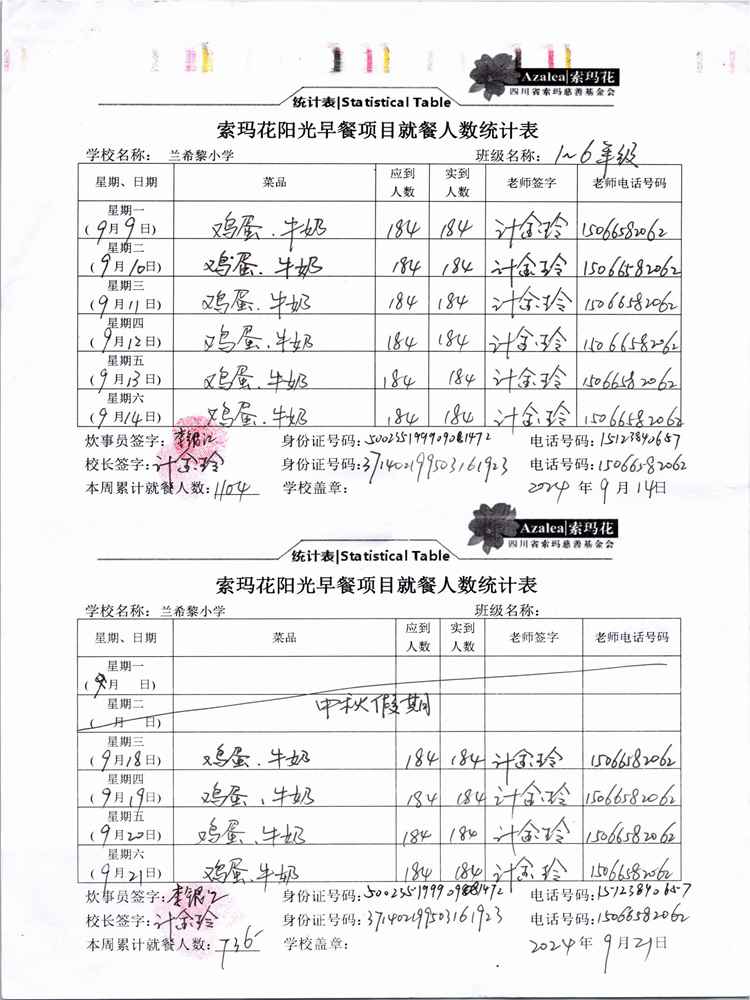 Azalea|索玛花
四川省索玛慈善基金会
统计表|Statistical Table
索玛花阳光早餐项目就餐人数统计表
学校名称： 兰希黎小学 班级名称： 1~6年级
星期、日期 菜品 应到人数 实到人数 老师签字 老师电话号码
星期一
(9月9日) 鸡蛋.牛奶 184 184 计金玲 15066582062
星期二
(9月10日) 鸡蛋.牛奶 184 184 计金玲 15066582062
星期三
(9月11日) 鸡蛋.牛奶 184 184 计金玲 15066582062
星期四
(9月12日) 鸡蛋.牛奶 184 184 计金玲 15066582062
星期五
(9月13日) 鸡蛋.牛奶 184 184 计金玲 15066582062
星期六
(9月14日) 鸡蛋.牛奶 184 184 计金玲 15066582062
炊事员签字: 李银 身份证号码: 电话号码: 15123840657
校长签字: 计金玲 身份证号码: 371402199503161923 电话号码: 15066582062
本周累计就餐人数: 1104 学校盖章： 2024年9月14日
Azalea|索玛花
四川省索玛慈善基金会
统计表|Statistical Table
索玛花阳光早餐项目就餐人数统计表
学校名称： 兰希黎小学 班级名称：
星期、日期 菜品 应到人数 实到人数 老师签字 老师电话号码
星期一
(9月 日)
星期二
( 月 日) 中秋假期
星期三
(9月18日) 鸡蛋.牛奶 184 184 计金玲 15066582062
星期四
(9月19日) 鸡蛋.牛奶 184 184 计金玲 15066582062
星期五
(9月20日) 鸡蛋.牛奶 184 184 计金玲 15066582062
星期六
(9月21日) 鸡蛋.牛奶 184 184 计金玲 15066582062
炊事员签字: 李银 身份证号码: 电话号码: 15123840657
校长签字: 计金玲 身份证号码: 371402199503161923 电话号码: 15066582062
本周累计就餐人数: 736 学校盖章： 2024年9月21日